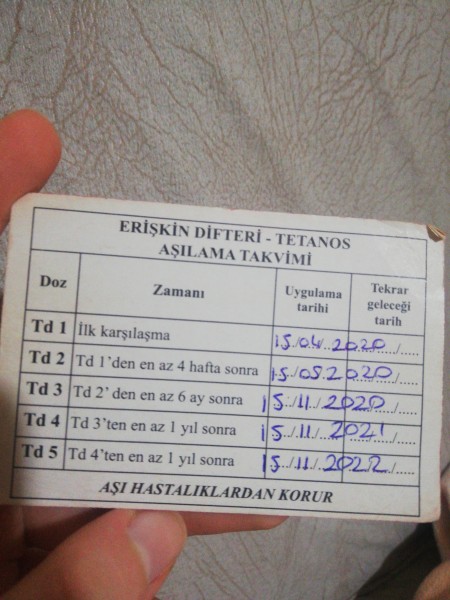 ERİŞKİN DİFTERİ - TETANOS
AŞILAMA TAKVİMİ
Doz Zamanı Uygulama tarihi Tekrar geleceği tarih
Td 1 İlk karşılaşma 15/04/2020
Td 2 Td 1'den en az 4 hafta sonra 15/05/2020
Td 3 Td 2' den en az 6 ay sonra 15/11/2020
Td 4 Td 3'ten en az 1 yıl sonra 15/11/2021
Td 5 Td 4'ten en az 1 yıl sonra 15/11/2022
AŞI HASTALIKLARDAN KORUR